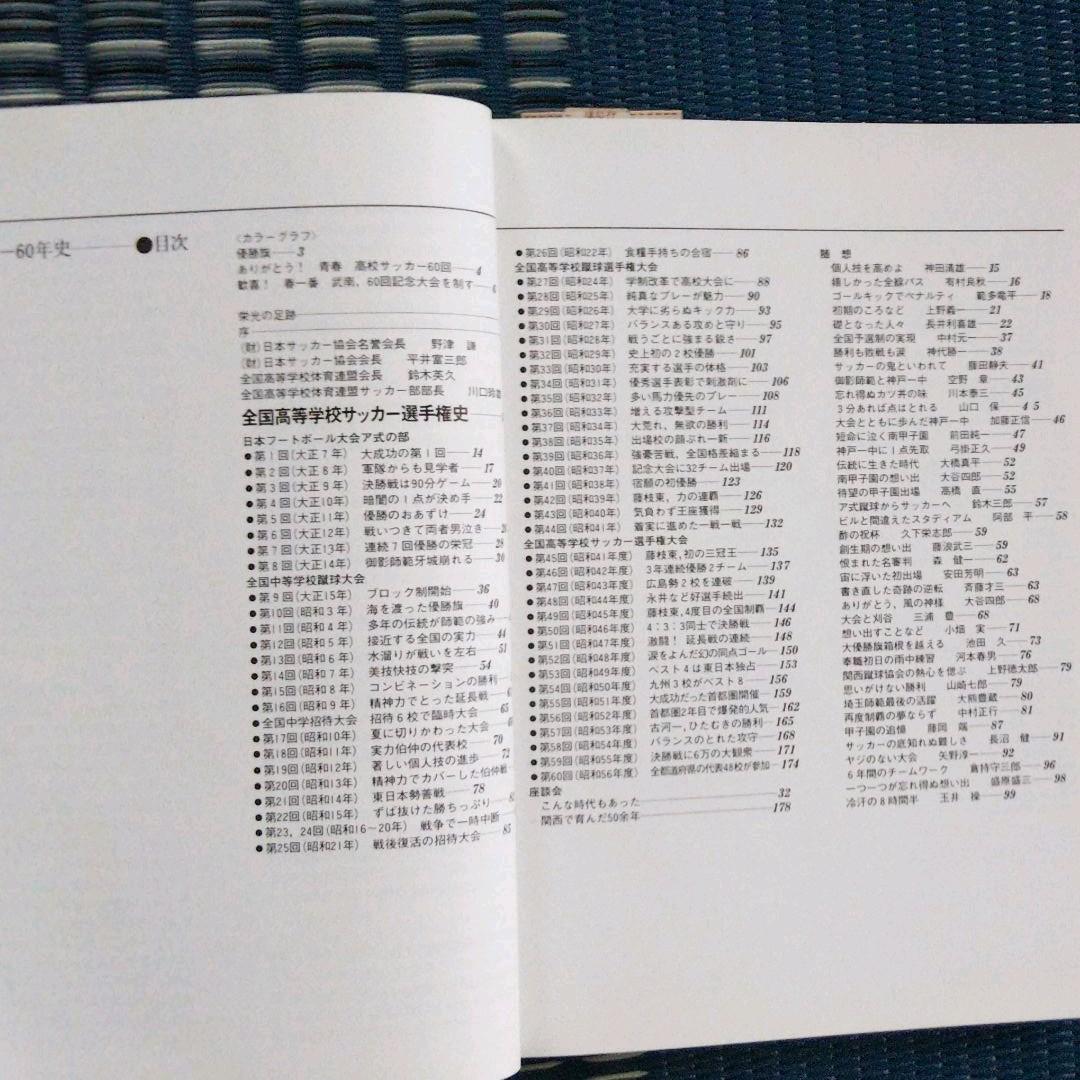 —60年史
●目次
〈カラーグラフ〉
優勝旗——3
ありがとう！　青春　高校サッカー60回——4
歓喜！　春一番　武南、60回記念大会を制す——6
栄光の足跡
序
(財)日本サッカー協会名誉会長　野津　謙
(財)日本サッカー協会会長　平井富三郎
全国高等学校体育連盟会長　鈴木英久
全国高等学校体育連盟サッカー部部長　川口
全国高等学校サッカー選手権史
日本フートボール大会ア式の部
●第1回(大正7年)　大成功の第1回——14
●第2回(大正8年)　軍隊からも見学者——17
●第3回(大正9年)　決勝戦は90分ゲーム——20
●第4回(大正10年)　暗闇の1点が決め手——22
●第5回(大正11年)　優勝のおあずけ——24
●第6回(大正12年)　戦いつきて両者男泣き
●第7回(大正13年)　連続7回優勝の栄冠——28
●第8回(大正14年)　御影師範牙城崩れる——30
全国中等学校蹴球大会
●第9回(大正15年)　ブロック制開始——36
●第10回(昭和3年)　海を渡った優勝旗——40
●第11回(昭和4年)　多年の伝統が師範の強み
●第12回(昭和5年)　接近する全国の実力——44
●第13回(昭和6年)　水溜りが戦いを左右——51
●第14回(昭和7年)　美技快技の撃突——54
●第15回(昭和8年)　コンビネーションの勝利
●第16回(昭和9年)　精神力でとった延長戦
●全国中学招待大会　招待6校で臨時大会——65
●第17回(昭和10年)　夏に切りかわった大会
●第18回(昭和11年)　実力伯仲の代表校——70
●第19回(昭和12年)　著しい個人技の進歩——72
●第20回(昭和13年)　精神力でカバーした伯仲戦
●第21回(昭和14年)　東日本勢善戦——78
●第22回(昭和15年)　ずば抜けた勝ちっぷり
●第23，24回(昭和16〜20年)　戦争で一時中断
●第25回(昭和21年)　戦後復活の招待大会——85
●第26回(昭和22年)　食糧手持ちの合宿——86
全国高等学校蹴球選手権大会
●第27回(昭和24年)　学制改革で高校大会に——88
●第28回(昭和25年)　純真なプレーが魅力——90
●第29回(昭和26年)　大学に劣らぬキック力——93
●第30回(昭和27年)　バランスある攻めと守り——95
●第31回(昭和28年)　戦うごとに強まる鋭さ——97
●第32回(昭和29年)　史上初の2校優勝——101
●第33回(昭和30年)　充実する選手の体格——103
●第34回(昭和31年)　優秀選手表彰で刺激剤に——106
●第35回(昭和32年)　多い馬力優先のプレー——108
●第36回(昭和33年)　増える攻撃型チーム——111
●第37回(昭和34年)　大荒れ、無欲の勝利——114
●第38回(昭和35年)　出場校の顔ぶれ一新——116
●第39回(昭和36年)　強豪苦戦、全国格差縮まる——118
●第40回(昭和37年)　記念大会に32チーム出場——120
●第41回(昭和38年)　宿願の初優勝——123
●第42回(昭和39年)　藤枝東，力の連覇——126
●第43回(昭和40年)　気負わず王座獲得——129
●第44回(昭和41年)　着実に進めた一戦一戦——132
全国高等学校サッカー選手権大会
●第45回(昭和41年度)　藤枝東，初の三冠王——135
●第46回(昭和42年度)　3年連続優勝2チーム——137
●第47回(昭和43年度)　広島勢2校を連破——139
●第48回(昭和44年度)　永井など好選手続出——141
●第49回(昭和45年度)　藤枝東，4度目の全国制覇——144
●第50回(昭和46年度)　4：3：3同士で決勝戦——146
●第51回(昭和47年度)　激闘！　延長戦の連続——148
●第52回(昭和48年度)　涙をよんだ幻の同点ゴール——150
●第53回(昭和49年度)　ベスト4は東日本独占——153
●第54回(昭和50年度)　九州3校がベスト8——156
●第55回(昭和51年度)　大成功だった首都圏開催——159
●第56回(昭和52年度)　首都圏2年目で爆発的人気——162
●第57回(昭和53年度)　古河一，ひたむきの勝利——165
●第58回(昭和54年度)　バランスのとれた攻守——168
●第59回(昭和55年度)　決勝戦に6万の大観衆——171
●第60回(昭和56年度)　全都道府県の代表48校が参加——174
座談会
こんな時代もあった——32
関西で育んだ50余年——178
随　想
個人技を高めよ　神田清雄——15
嬉しかった全線パス　有村良秋——16
ゴールキックでペナルティ　範多竜平——18
初期のころなど　上野義一——21
礎となった人々　長井利喜雄——22
全国予選制の実現　中村元一——37
勝利も敗戦も涙　神代勝一——38
サッカーの鬼といわれて　藤田静夫——41
御影師範と神戸一中　空野　章——43
忘れ得ぬカツ丼の味　川本泰三——45
3分あれば点はとれる　山口　保——4 5
大会とともに歩んだ神戸一中　加藤正信——46
短命に泣く南甲子園　前田純一——47
神戸一中に1点先取　弓掛正久——49
伝統に生きた時代　大橋真平——52
南甲子園の想い　大谷四郎——52
待望の甲子園出場　高橋　直——55
ア式蹴球からサッカーへ　鈴木三郎——57
ビルと間違えたスタディアム　阿部　平——58
酢の祝杯　久下栄志郎——59
創生期の想い出　藤浪武三——59
恨まれた名審判　森　健一——62
宙に浮いた初出場　安田芳明——63
書き直した奇跡の逆転　斉藤才三——63
ありがとう，風の神様　大谷四郎——68
大会と刈谷　三浦　豊——68
想い出すことなど　小畑　実——71
大優勝旗箱根を越える　池田　久——73
奉職初日の雨中練習　河本春男——76
関西蹴球協会の熱心を偲ぶ　上野徳太郎——79
思いがけない勝利　山崎七郎——79
埼玉師範最後の活躍　大熊豊蔵——80
再度制覇の夢ならず　中村正行——81
甲子園の追憶　藤岡　端——87
サッカーの底知れぬ難しさ　長沼　健——91
ヤジのない大会　矢野淳一——92
6年間のチームワーク　倉持守三郎——96
一つ一つが忘れ得ぬ想い出　盛原盛三——98
冷汗の8時間半　玉井　操——99